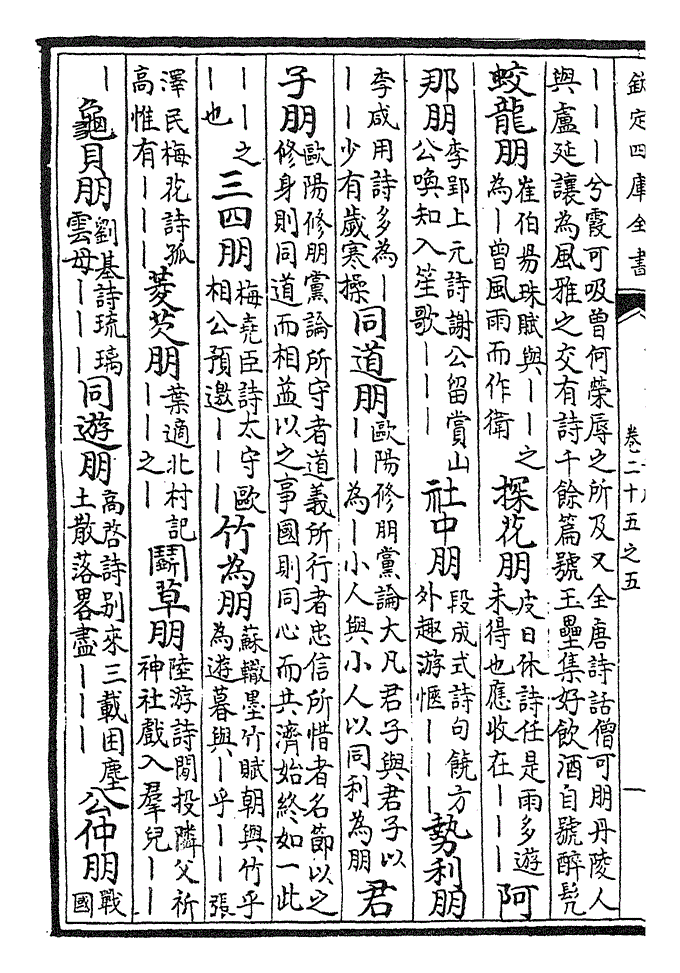 欽定四庫全書
卷二十五之五
｜｜｜兮霞可吸曽何榮辱之所及又全唐詩話僧可朋丹陵人
與盧延讓為風雅之交有詩千餘篇號玉壘集好飲酒自號醉髠
蛟龍朋崔伯昜珠賦與｜｜之為｜曽風雨而作衛探花朋皮日休詩任是雨多遊未得也應收在｜｜｜阿
那朋李郢上元詩謝公留賞山公喚知入笙歌｜｜｜社中朋段成式詩句饒方外趣游愜｜｜｜勢利朋
李咸用詩多為｜｜｜少有歲寒操同道朋歐陽修朋黨論大凡君子與君子以｜｜為｜小人與小人以同利為朋君
子朋歐陽修朋黨論所守者道義所行者忠信所惜者名節以之修身則同道而相益以之事國則同心而共濟始終如一此
｜｜｜之也三四朋梅堯臣詩太守歐相公預邀｜｜｜竹為朋蘇轍墨竹賦朝與竹乎為遊暮與｜乎｜｜張
澤民梅花詩孤高惟有｜｜｜菱芡朋葉適北村記｜｜｜之｜鬭草朋陸游詩閒投隣父祈神社戲入羣兒｜｜｜
｜龜貝朋劉基詩琉璃雲母｜｜｜同遊朋高啓詩别來三載困塵土散落畧盡｜｜｜公仲朋戰國